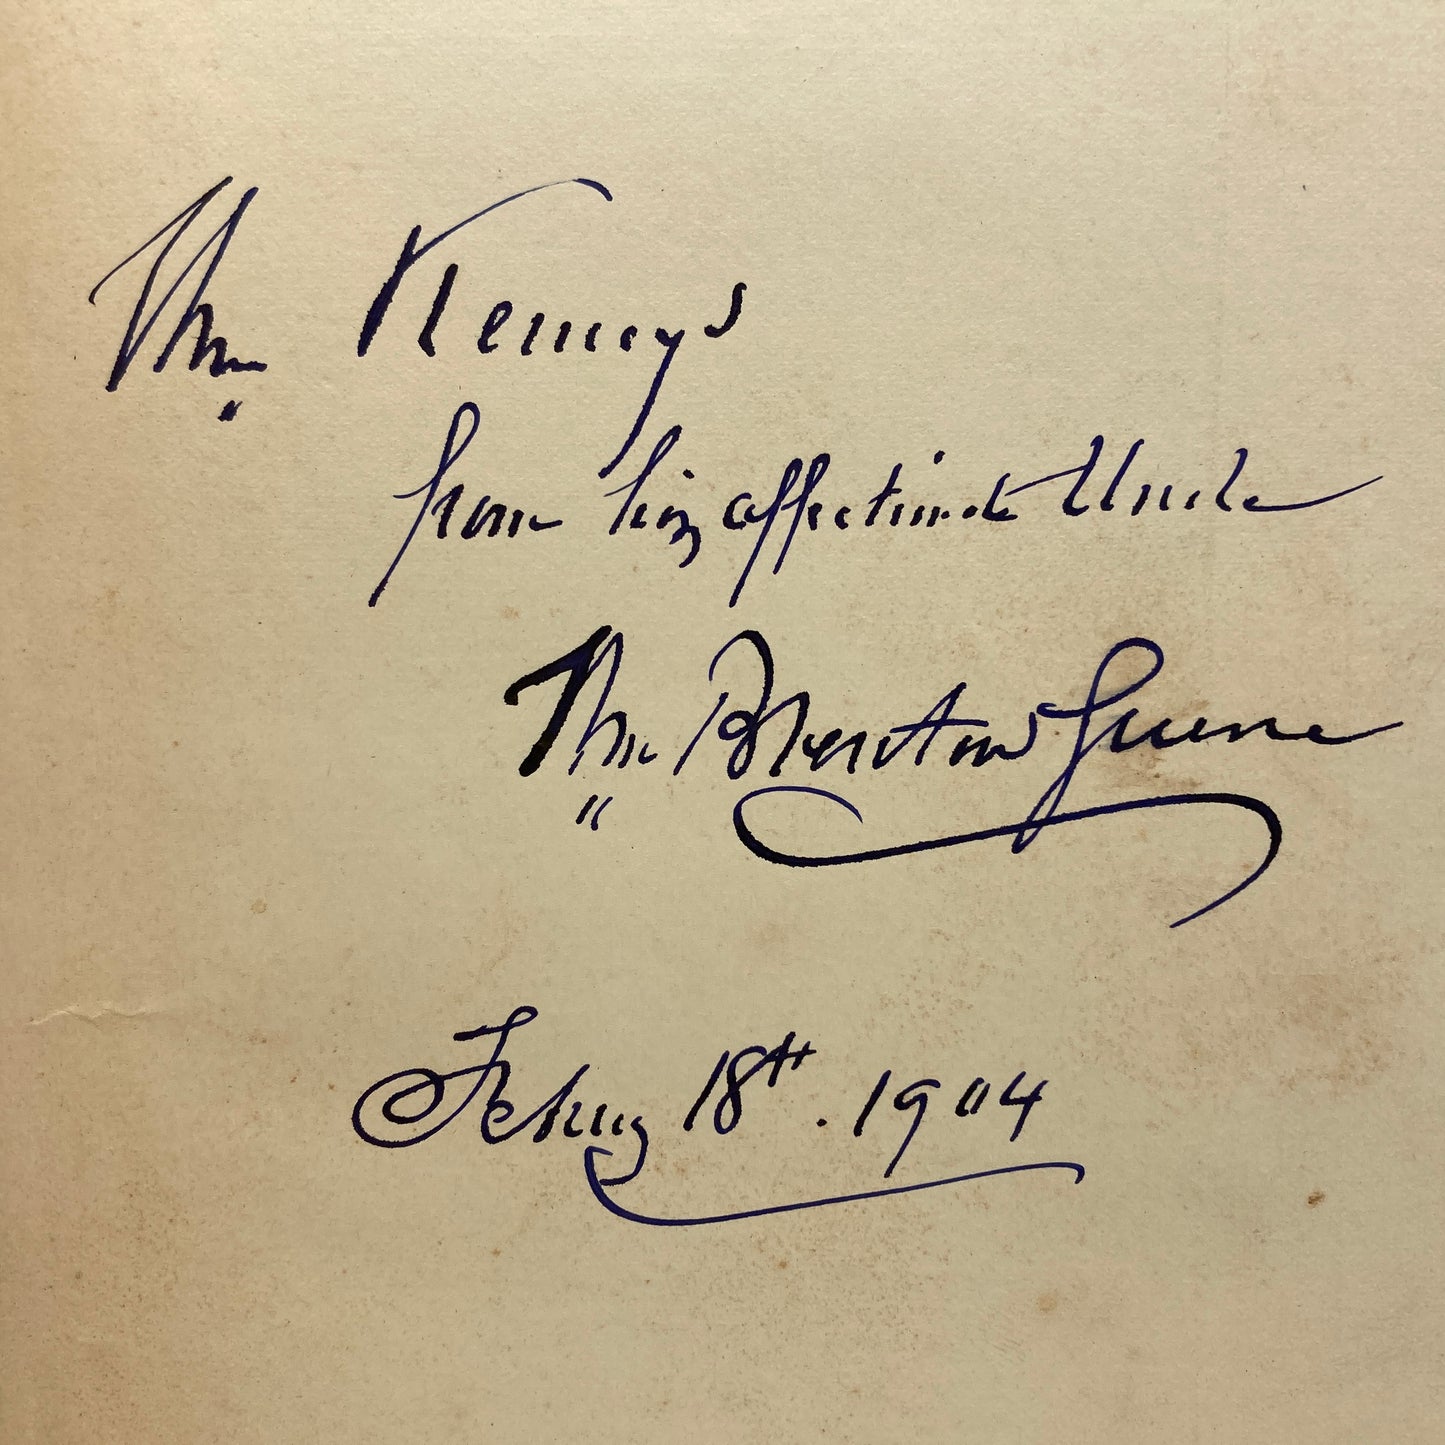 Wm Kemeys
from his affectionate Uncle
Wm Brenton Greene
Feby 18th. 1904